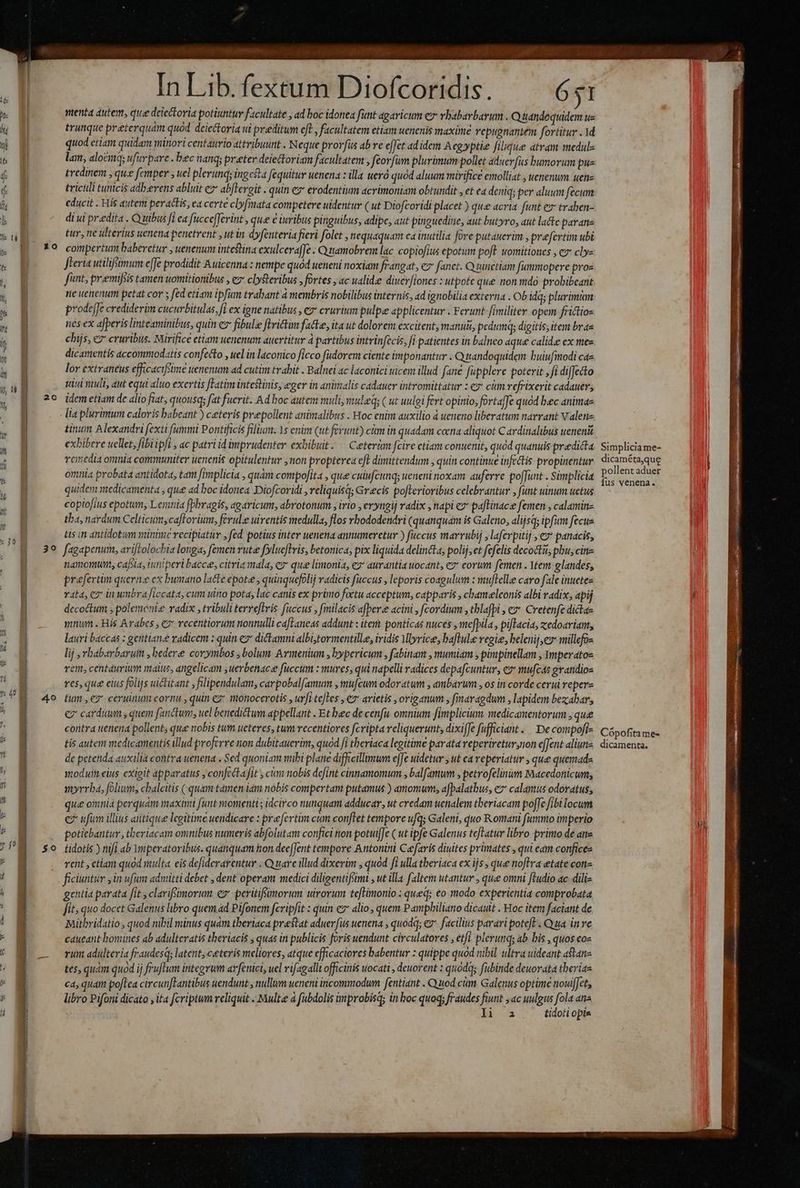 In Lib. sextum Dioscoridis. 651
menta autem, quæ deiectoria potiuntur facultate, ad hoc idonea sunt agaricum &amp; rhabarbarum. Quandoquidem u=
trunque præterquàm quòd deiectoria ui præditum est, facultatem etiam uenenis maximè repugnantem sortitur. Id
quod etiam quidam minori centaurio attribuunt. Neque prorsus ab re esset ad idem Aegyptiæ siliquæ atram medul=
lam, aloémq; usurpare. hæc nanq; præter deiectoriam facultatem, seorsum plurimum pollet aduersus humorum pu=
tredinem, quæ semper, uel plerunq; ingesta sequitur uenena: illa uerò quòd aluum mirificè emolliat, uenenum uen=
triculi tunicis adhærens abluit &amp; abstergit. quin &amp; erodentium acrimoniam obtundit, et ea deniq; per aluum secum
educit. His autem peractis, ea certè clysmata competere uidentur (ut Dioscoridi placet) quæ acria sunt &amp; trahen=
di ui prædita. Quibus si ea successerint, quæ è iuribus pinguibus, adipe, aut pinguedine, aut butyro, aut lacte paran=
tur, ne ulterius uenena penetrent, ut in dysenteria fieri solet, nequaquam ea inutilia fore putauerim, præsertim ubi
10 compertum haberetur, uenenum intestina exulcerasse. Quamobrem lac copiosius epotum post uomitiones, &amp; cly=
steria utilissimum esse prodidit Auicenna: nempe quòd ueneni noxiam frangat, &amp; sanet. Quinetiam summopere pro=
sunt, præmissis tamen uomitionibus, &amp; clysteribus, fortes, ac ualidæ diuersiones: utpote quæ non modò prohibeant
ne uenenum petat cor, sed etiam ipsum trahant à membris nobilibus internis, ad ignobilia externa. Ob idq; plurimùm
prodesse crediderim cucurbitulas, si ex igne natibus, &amp; crurium pulpæ applicentur. Ferunt similiter opem frictio=
nes ex asperis linteaminibus, quin &amp; fibulæ strictim factæ, ita ut dolorem excitent, manuū, pedumq; digitis, item bra=
chijs, &amp; cruribus. Mirificè etiam uenenum auertitur à partibus intrinsecis, si patientes in balneo aquæ calidæ ex me=
dicamentis accommodatis confecto, uel in laconico sicco sudorem ciente imponantur. Quandoquidem huiusmodi ca=
lor extraneus efficacissimè uenenum ad cutim trahit. Balnei ac laconici uicem illud sanè supplere poterit, si dissecto
uiui muli, aut equi aluo exertis statim intestinis, æger in animalis cadauer intromittatur: &amp; cùm refrixerit cadauer,
20 idem etiam de alio fiat, quousq; sat fuerit. Ad hoc autem muli, mulæq; (ut uulgi fert opinio, fortasse quòd hæc anima=
lia plurimum caloris habeant) cæteris præpollent animalibus. Hoc enim auxilio à ueneno liberatum narrant Valen=
tinum Alexandri sexti summi Pontificis filium. Is enim (ut ferunt) cùm in quadam cœna aliquot Cardinalibus uenenū
exhibere uellet, sibi ipsi, ac patri id imprudenter exhibuit. Ceterùm scire etiam conuenit, quòd quanuis prædicta
remedia omnia communiter uenenis opitulentur, non propterea est dimittendum, quin continuè infectis propinentur
omnia probata antidota, tam simplicia, quàm composita, quæ cuiuscunq; ueneni noxam auferre possunt. Simplicia
quidem medicamenta, quæ ad hoc idonea Dioscoridi, reliquisq; Græcis posterioribus celebrantur, sunt uinum uetus
copiosius epotum, Lemnia sphragis, agaricum, abrotonum, irio, eryngij radix, napi &amp; pastinacæ semen, calamin=
tha, nardum Celticum, castorium, ferulæ uirentis medulla, flos rhododendri (quanquam is Galeno, alijsq; ipsum secu=
tis in antidotum minimè recipiatur, sed potius inter uenena annumeretur) succus marrubij, laserpitij, &amp; panacis,
30 sagapenum, aristolochia longa, semen rutæ syluestris, betonica, pix liquida delincta, polij, et seselis decoctū, phu, cin=
namomum, casia, iuniperi baccæ, citria mala, &amp; quæ limonia, &amp; aurantia uocant, &amp; eorum semen. Item glandes,
præsertim quernæ ex humano lacte epotæ, quinquefolij radicis succus, leporis coagulum: mustellæ caro sale inuete=
rata, &amp; in umbra siccata, cum uino pota, lac canis ex primo foetu acceptum, capparis, chamæleonis albi radix, apij
decoctum, polemoniæ radix, tribuli terrestris succus, smilacis asperæ acini, scordium, thlaspi, &amp; Cretense dicta=
mnum. His Arabes, &amp; recentiorum nonnulli castaneas addunt: item ponticas nuces, mespila, pistacia, zedoariam,
lauri baccas: gentianæ radicem: quin &amp; dictamni albi, tormentillæ, iridis Illyricæ, hastulæ regiæ, helenij, &amp; millefo=
lij, rhabarbarum, hederæ corymbos, bolum Armenium, hypericum, sabinam, mumiam, pimpinellam, Imperato=
rem, centaurium maius, angelicam, uerbenacæ succum: mures, qui napelli radices depascuntur, &amp; muscas grandio=
res, quæ eius folijs uictitant, filipendulam, carpobalsamum, muscum odoratum, ambarum, os in corde cerui reper=
40 tum, &amp; ceruinum cornu, quin &amp; monocerotis, ursi testes, &amp; arietis, origanum, smaragdum, lapidem bezahar,
&amp; carduum, quem sanctum, uel benedictum appellant. Et hæc de censu omnium simplicium medicamentorum, quæ
contra uenena pollent, quæ nobis tum ueteres, tum recentiores scripta reliquerunt, dixisse sufficiant. De composi=
tis autem medicamentis illud proferre non dubitauerim, quòd si theriaca legitimè parata reperiretur, non essent aliun=
de petenda auxilia contra uenena. Sed quoniam mihi planè difficillimum esse uidetur, ut ea reperiatur, quæ quemad=
modum eius exigit apparatus, confecta sit, cùm nobis desint cinnamomum, balsamum, petroselinum Macedonicum,
myrrha, folium, chalcitis (quam tamen iam nobis compertam putamus) amomum, aspalathus, &amp; calamus odoratus,
quæ omnia perquàm maximi sunt momenti; idcirco nunquam adducar, ut credam uenalem theriacam posse sibi locum
&amp; usum illius antiquæ legitimè uendicare: præsertim cùm constet tempore usq; Galeni, quo Romani summo imperio
potiebantur, theriacam omnibus numeris absolutam confici non potuisse (ut ipse Galenus testatur libro primo de an=
50 tidotis) nisi ab Imperatoribus. quanquam non deessent tempore Antonini Cæsaris diuites primates, qui eam confice=
rent, etiam quòd multa eis desiderarentur. Quare illud dixerim, quòd si ulla theriaca ex ijs, quæ nostra ætate con=
ficiuntur, in usum admitti debet, dent operam medici diligentissimi, ut illa saltem utantur, quæ omni studio ac dili=
gentia parata sit, clarissimorum &amp; peritissimorum uirorum testimonio: quæq; eo modo experientia comprobata
sit, quo docet Galenus libro quem ad Pisonem scripsit: quin &amp; alio, quem Pamphiliano dicauit. Hoc item faciant de
Mithridatio, quod nihil minus quàm theriaca præstat aduersus uenena, quodq; &amp; facilius parari potest. Qua in re
caueant homines ab adulteratis theriacis, quas in publicis foris uendunt circulatores, etsi plerunq; ab his, quos eo=
rum adulteria fraudesq; latent, cæteris meliores, atque efficaciores habentur: quippe quòd nihil ultra uideant astan=
tes, quàm quòd ij frustum integrum arsenici, uel risagalli officinis uocati, deuorent: quòdq; subinde deuorata theria=
ca, quam postea circunstantibus uendunt, nullum ueneni incommodum sentiant. Quod cùm Galenus optimè nouisset,
libro Pisoni dicato, ita scriptum reliquit. Multæ à subdolis improbisq; in hoc quoq; fraudes fiunt, ac uulgus sola an=
Ii 2 tidoti opi=
Simplicia me=
dicamēta, quę
pollent aduer
sus venena.
Cōposita me=
dicamenta.